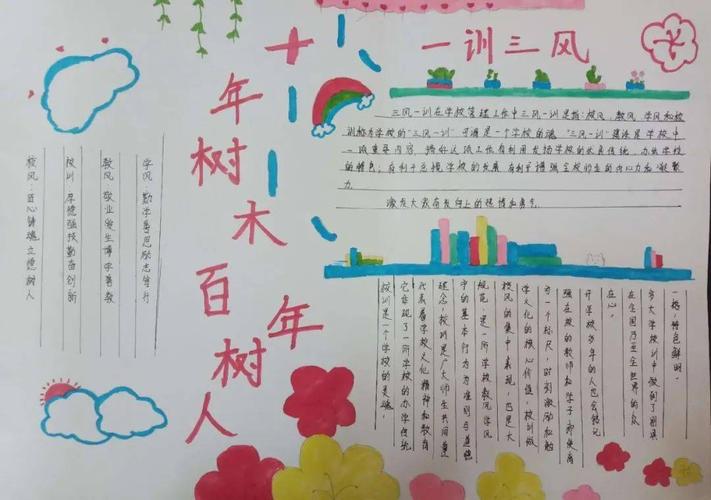 一训三风
十年树木
百年树人
三风一训在学校管理工作中三风一训是指:校风、教风、学风和校
训称为学校的"三风一训" 可谓是一个学校的魂 "三风一训"建设是学校中
一项重要内容. 搞好这项工作有利用发扬学校的优良传统, 办出学校
的特色, 有利于正规学校的发展 有利于增强全校师生的内心力和凝聚
力.
激发大家奋发向上的热情和勇气
学风:勤学善思励志笃行
教风 敬业爱生博学善教
校训 厚德强技勤奋创新
校风:匠心铸魂立德树人
校训是一个学校的灵魂,
它体现了一所学校的办学传统
代表着学校文化精神和教育
理念,校训是广大师生共同遵
守的基本行为准则与道德
规范,是一所学校教风学风
校风的集中表现,也是大
学文化的核心价值,校训做
为一个标尺,时刻激励和勉
强在校的教师和学子即使离
开学校多年的人也会铭记
在心
在全国乃至全世界的众
多大学校训中做到了别具
一格,特色鲜明.